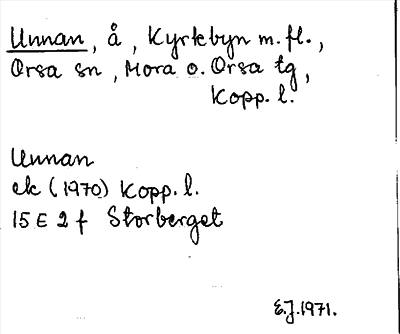 Unnan, å, Kyrkbyn m. fl.,
Orsa sn, Mora o. Orsa tg,
Kopp. l.
Unnan
ek (1970) Kopp. l.
15 E 2 f Storberget
E.J. 1971.